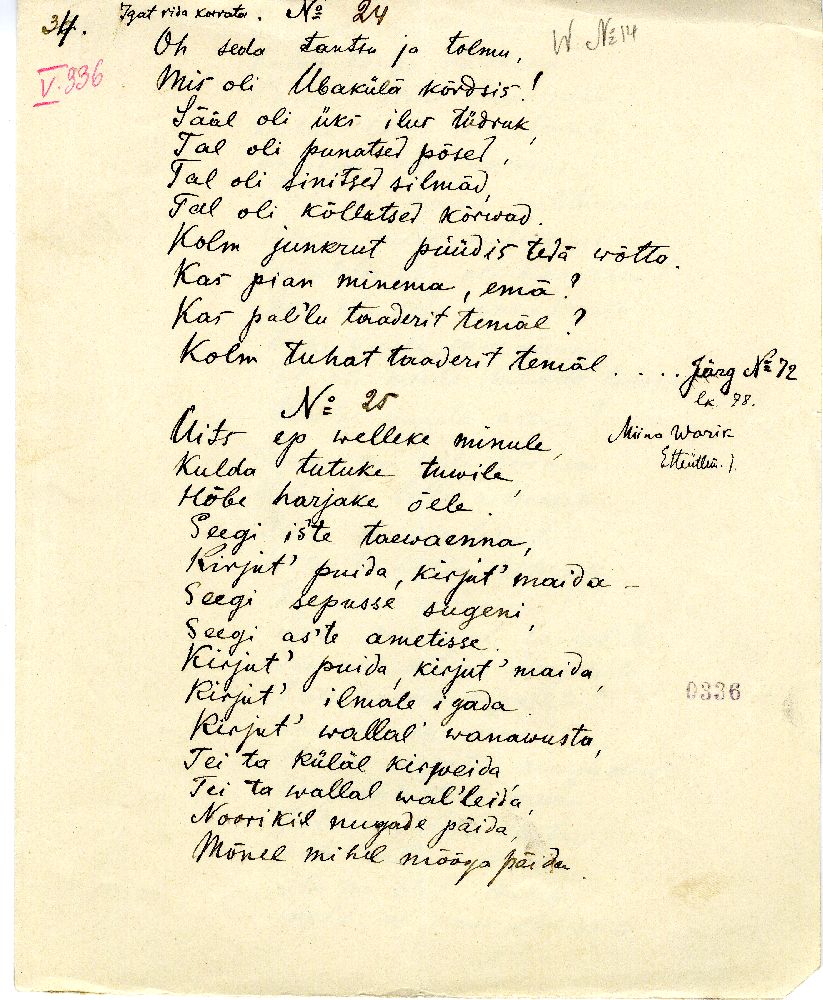 34. Igat rida korrata. No 24
W. No 14
V. 336
Oh seda tantsu ja tolmu,
Mis oli Ubakülä kõrdsis!
Sääl oli üks ilus tüdruk,
Tal oli punatsed põsed,
Tal oli sinitsed silmäd,
Tal oli kõllatsed kõrwad.
Kolm junkrut püüdis tedä wõtta.
Kas pian minema, emä?
Kas pal'lu taaderit temäl?
Kolm tuhat taaderit temäl .... Järg No 72
lk. 98.
No 25
Miina Warik
Uits ep welleke minule,
Kulda tutuke tuwile,
Hõbe harjake õele.
Seegi is'te taewaenna,
Kirjut' puida, kirjut' maida –
Seegi sepusse sugeni,
Seegi as'te ametisse.
Kirjut' puida, kirjut' maida,
Kirjut' ilmale igada
Kirjut' wallal' wanawusta,
Tei ta küläl kirweida
Tei ta wallal wal'leida,
Noorikil nugade päida,
Mõnel mihel mõõga päida.
0336